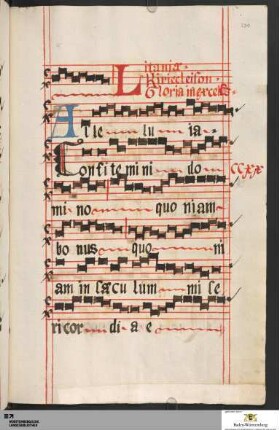 Litania
Kirieeleison
Gloria in excels
Alle lu ia
Confite mini do
CCXX
mi no quoniam
bo nus quo ni
am in sæcu lum mi se
ricor di a e
Baden-Württemberg